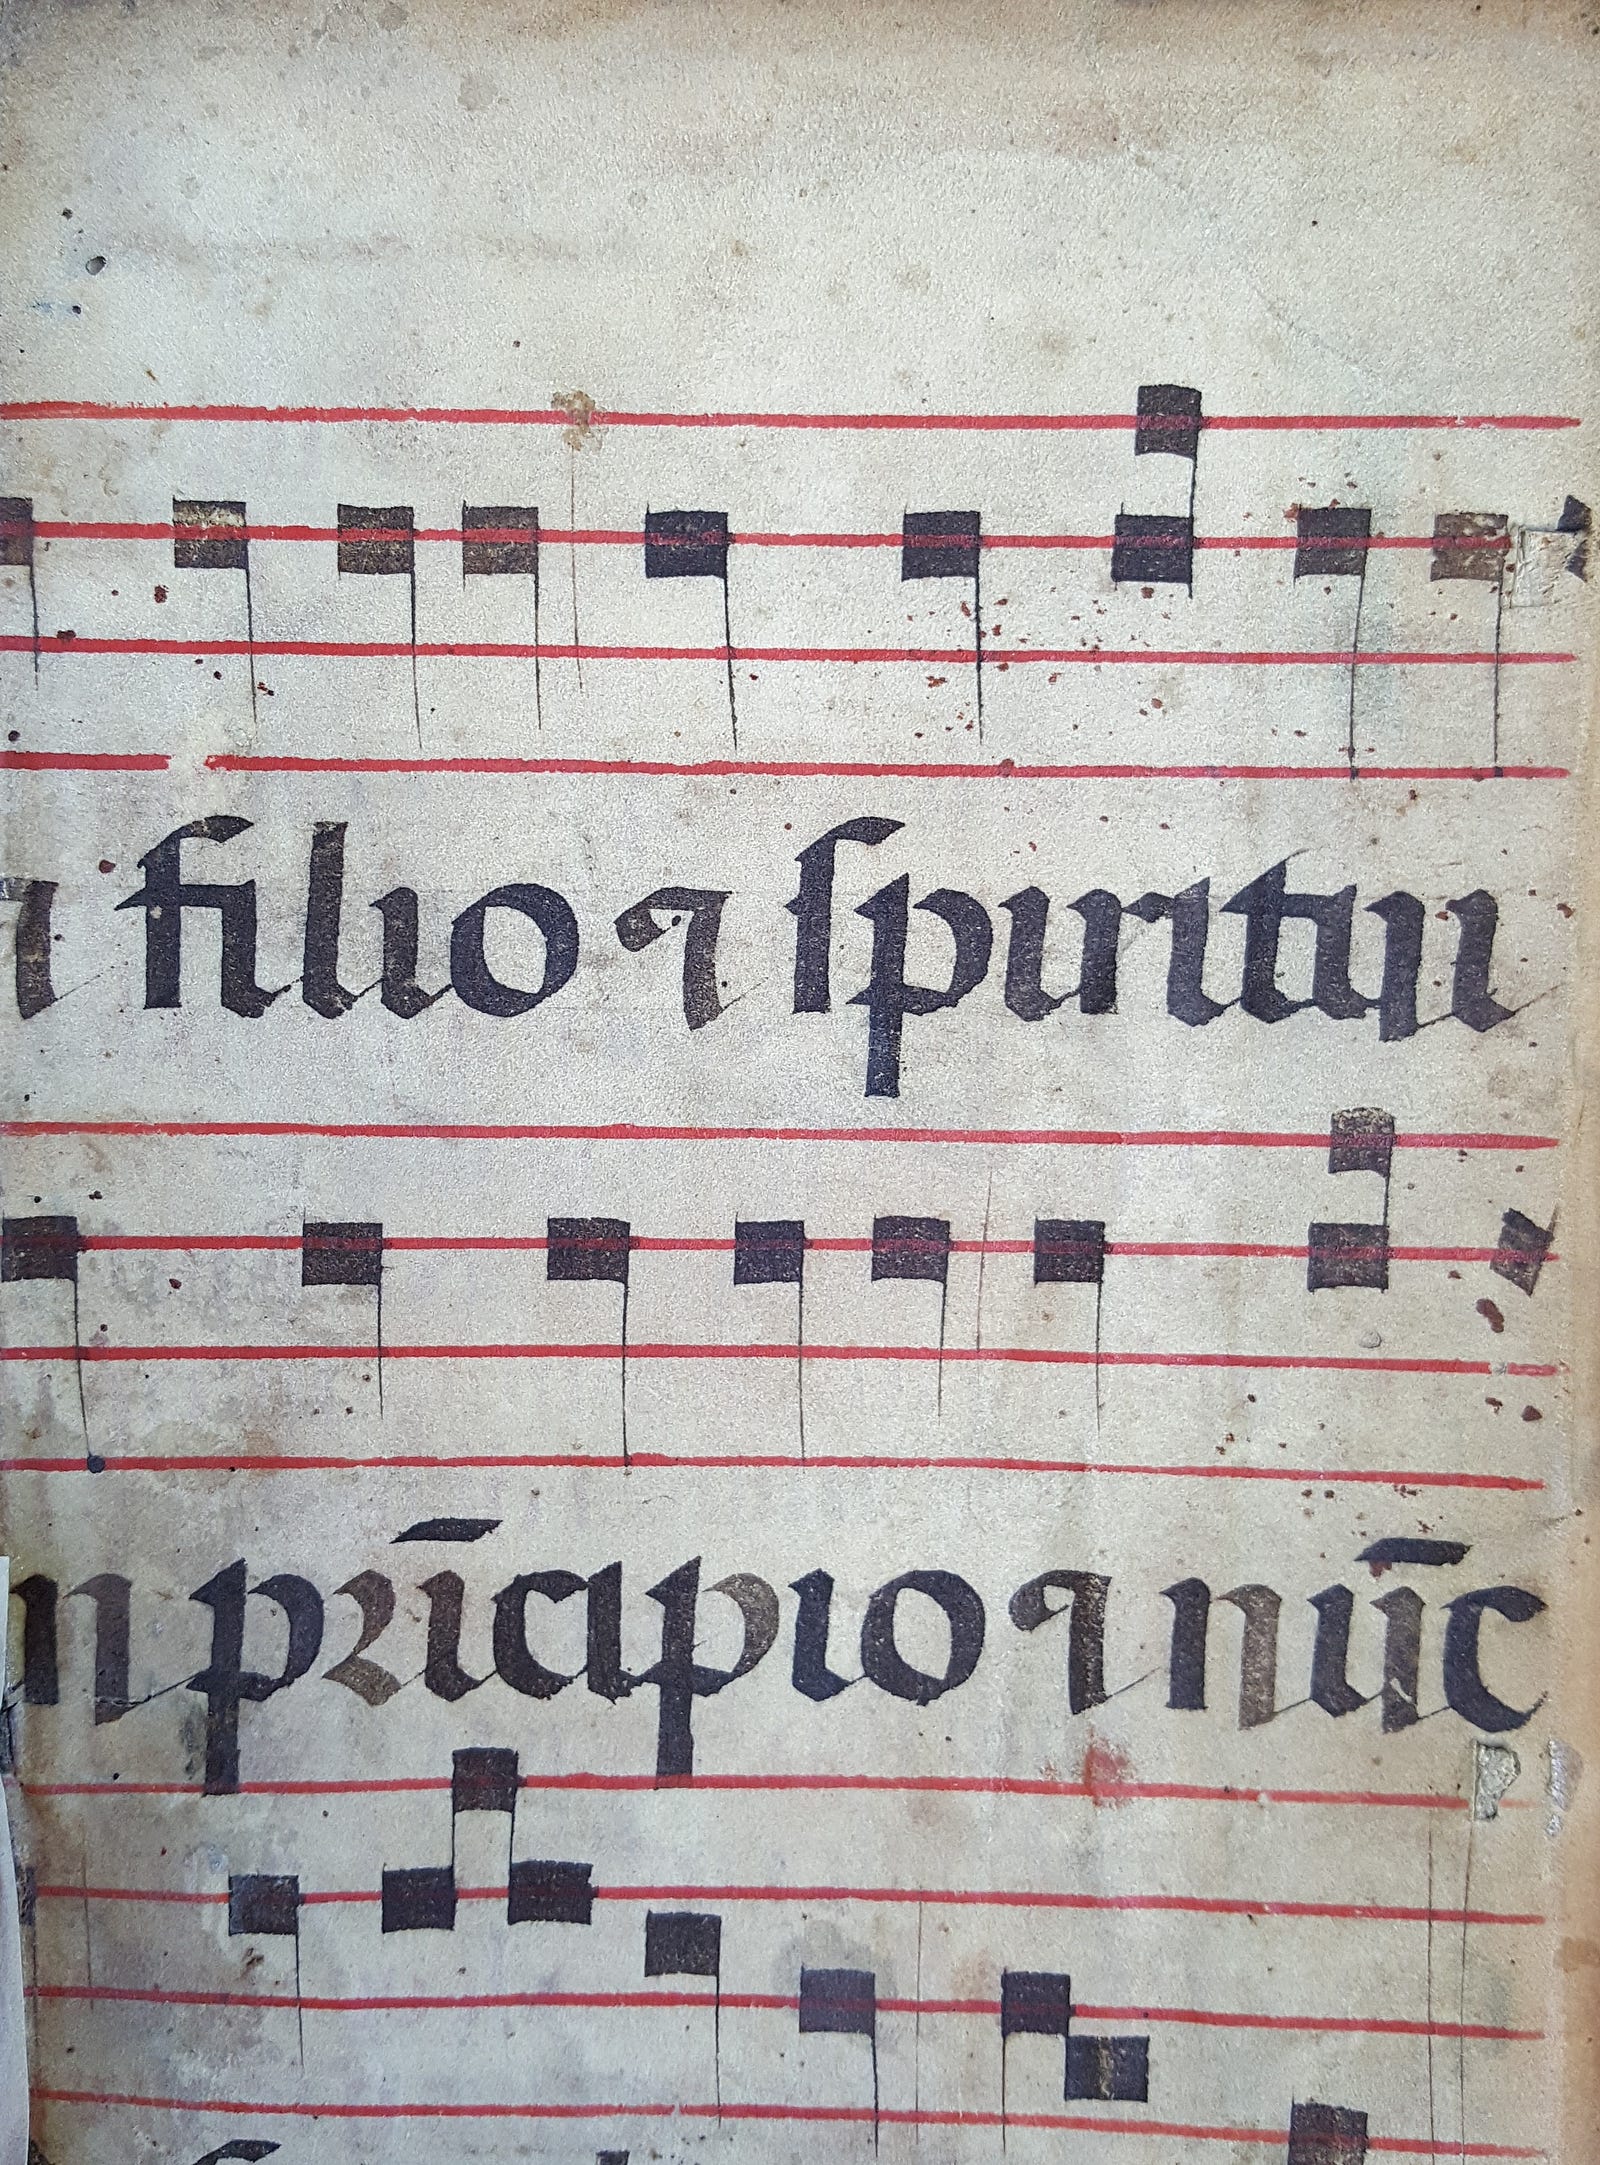 ⁊ filio ⁊ ſpiritui
n prīcipio ⁊ nūc